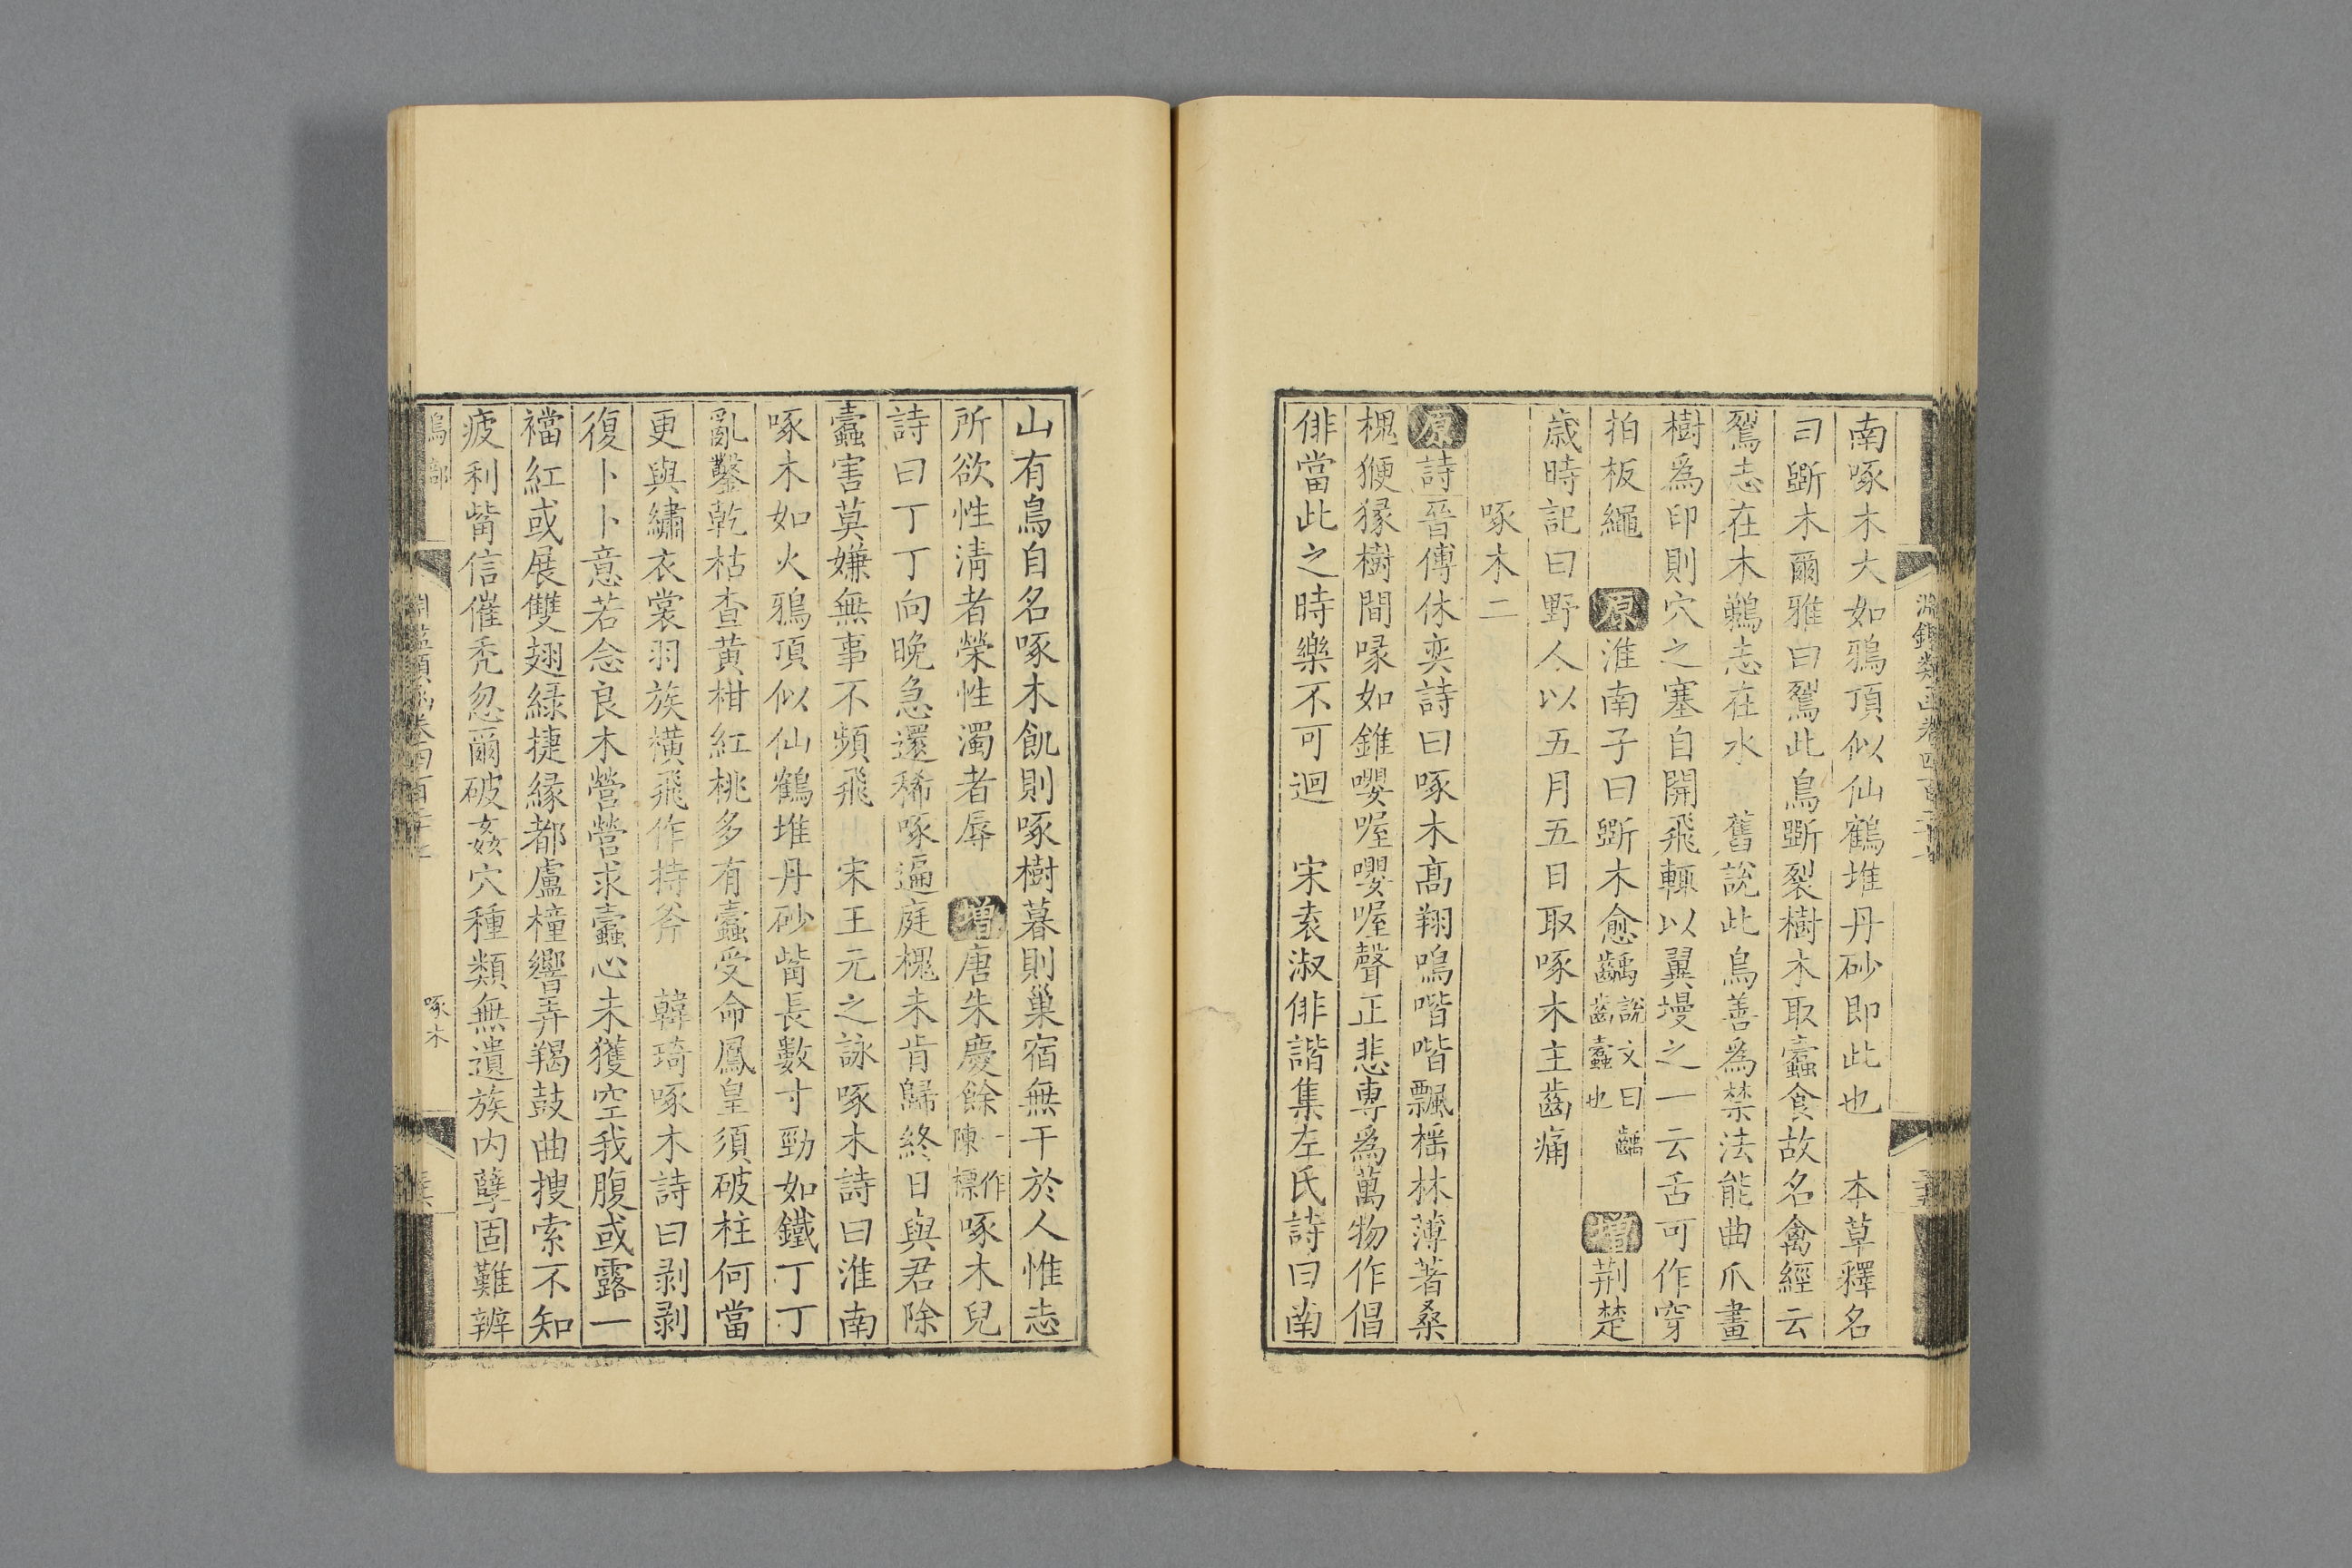 南啄木大如鴉頂似仙鶴堆丹砂即此也　本草釋名
曰斲木爾雅曰鴷此鳥斲裂樹木取蠹食故名禽經云
鴷志在木鵜志在水　舊說此鳥善爲禁法能曲爪畫
樹爲印則穴之塞自開飛輒以翼墁之一云舌可作穿
拍板繩　原淮南子曰斲木愈齲說文曰齲齒蠹也　增荆楚
歲時記曰野人以五月五日取啄木主齒痛
啄木二
原詩晉傅休奕詩曰啄木高翔鳴喈喈飄揺林薄著桑
槐㹴猭樹間喙如錐嚶喔嚶喔聲正悲專爲萬物作倡
俳當此之時樂不可迴　宋袁淑俳諧集左氏詩曰南
山有鳥自名啄木飢則啄樹暮則巢宿無干於人惟志
所欲性淸者榮性濁者辱　增唐朱慶餘一作陳標啄木兒
詩曰丁丁向晚急還稀啄遍庭槐未肯歸終日與君除
蠹害莫嫌無事不頻飛　宋王元之詠啄木詩曰淮南
啄木如火鴉頂似仙鶴堆丹砂觜長數寸勁如鐵丁丁
亂鑿乾枯查黃柑紅桃多有蠹受命鳳皇須破柱何當
更與繡衣裳羽族橫飛作持斧　韓琦啄木詩曰剥剥
復卜卜意若念良木營營求蠹心未獲空我腹或露一
襠紅或展雙翅綠捷緣都盧橦響弄羯鼓曲搜索不知
疲利觜信催禿忽爾破姦穴種類無遺族内孽固難辨
鳥部
啄木